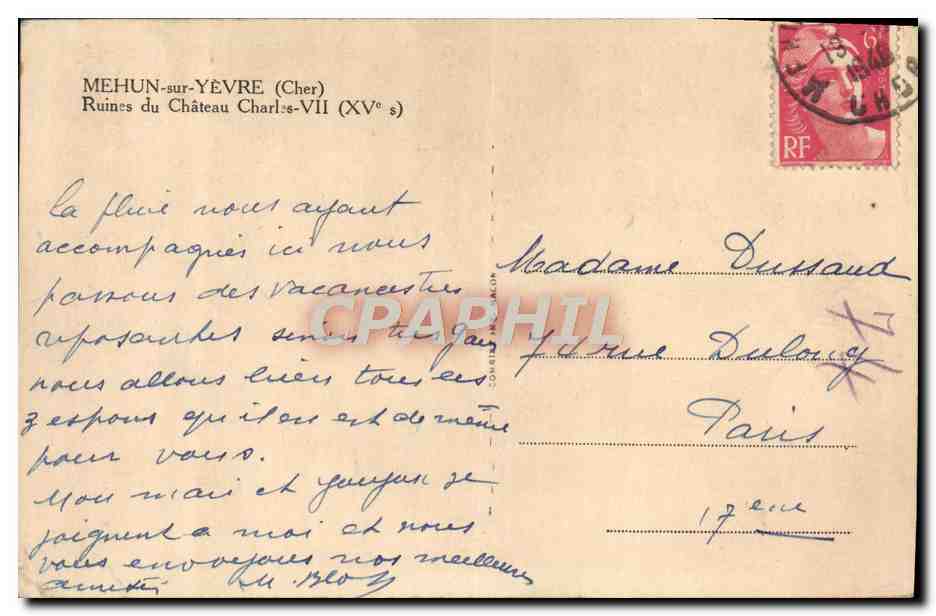 MEHUN-sur-YÈVRE (Cher)
Ruines du Château Charles-VII (XVe s)
la pluie nous ayant
accompagnés ici nous
passons des vacances très
reposantes sinon très gaies
nous allons bien tous les
3 espons qu'il en est de même
pour vous.
Mon mari et se
joignent a moi et nous
vous envoyons nos meilleures
amitiés
Madame Dussaud
74 rue Dulong
Paris
17eme
COMBIER IMP MACON
RF
CPAPHIL